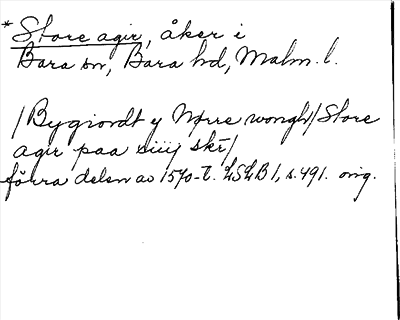 * Store agir, åker i
Bara sn, Bara hd, Malm. l.
/Bygiondt y Nørre wongh/Store
agir paa xiiij skr/
förra delen av 1570-t. LSLB 1, s. 491. orig.